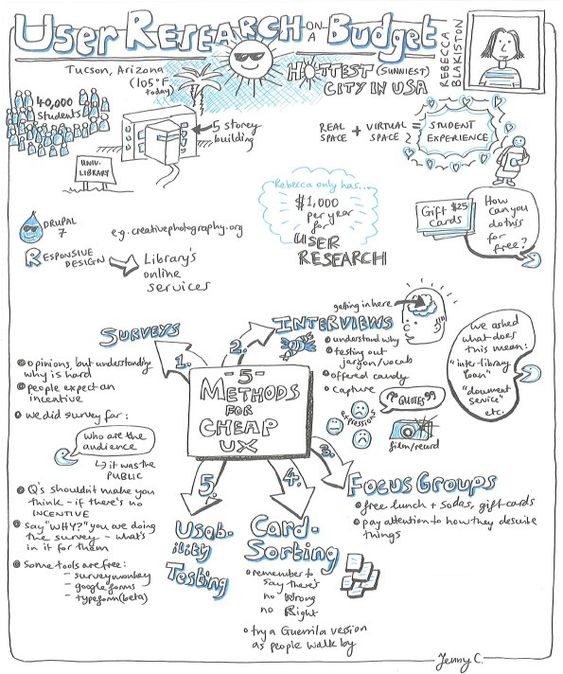 USER RESEARCH ON A Budget
REBECCA BLAKISTON
Tucson, Arizona
(105°F today)
HOTTEST (SUNNIEST)
CITY IN USA
40,000
Students
5 storey
building
UNIV-
LIBRARY
REAL SPACE + VIRTUAL SPACE = STUDENT EXPERIENCE
Rebecca only has...
$1,000
per year
for
USER
RESEARCH
Gift $25
Cards
How
can you
do this
for
free?
DRUPAL
7
e.g. creativephotography.org
RESPONSIVE
DESIGN
Library's
online
services
-5-
METHODS
FOR
CHEAP
UX
1.
SURVEYS
opinions, but understanding
why is hard
people expect an
incentive
we did survey for:
who are the
audience
↳ it was the
PUBLIC
Q's shouldn't make you
think - if there's no
INCENTIVE
say "WHY?" you are doing
the survey - what's
in it for them
Some tools are free:
- surveymonkey
- google forms
- typeform (beta)
2.
INTERVIEWS
getting in here
understand why
testing out
jargon/vocab
offered candy
capture
expressions
"QUOTES"
film/record
we asked
what does
this mean:
"inter-library
loan"
"document
service"
etc.
3.
FOCUS GROUPS
free lunch + sodas, gift cards
pay attention to how they describe
things
4.
Card-
Sorting
remember to
say there's
no Wrong
no Right
try a Guerrilla version
as people walk by
5.
Usab-
ility
Testing
Jenny C.